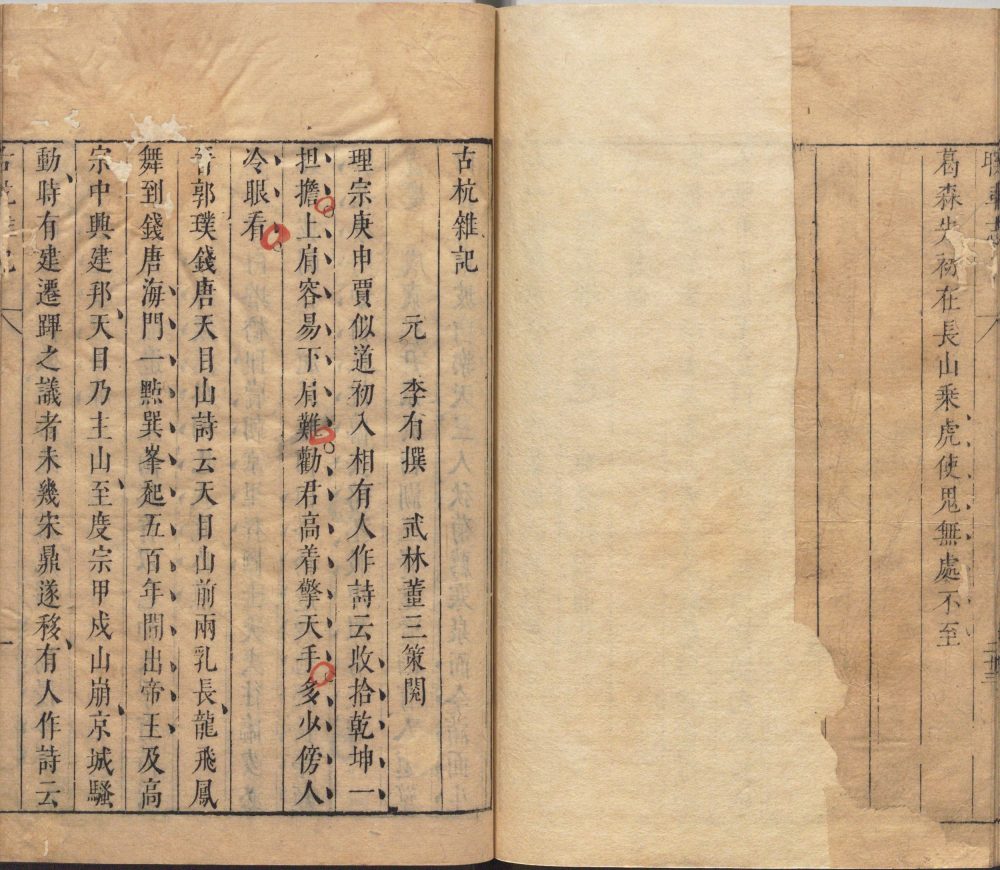 葛森失初在長山乘虎使鬼無處不至
古杭雜記
元　李有撰　武林董三策閱
理宗庚申賈似道初入相有人作詩云收拾乾坤一
担擔上肩容易下肩難勸君高着擎天手多少傍人
冷眼看
晉郭璞錢唐天目山詩云天目山前兩乳長龍飛鳳
舞到錢唐海門一㸃巽峯起五百年間出帝王及高
宗中興建邦天目乃主山至度宗甲戌山崩京城騷
動時有建遷蹕之議者未幾宋鼎遂移有人作詩云
古杭雜記
一